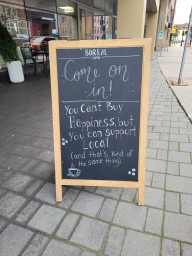 BOREAL
Come on
in!
You Can't Buy
Happiness, but
You can support
Local
(and that's kind of
the same thing)